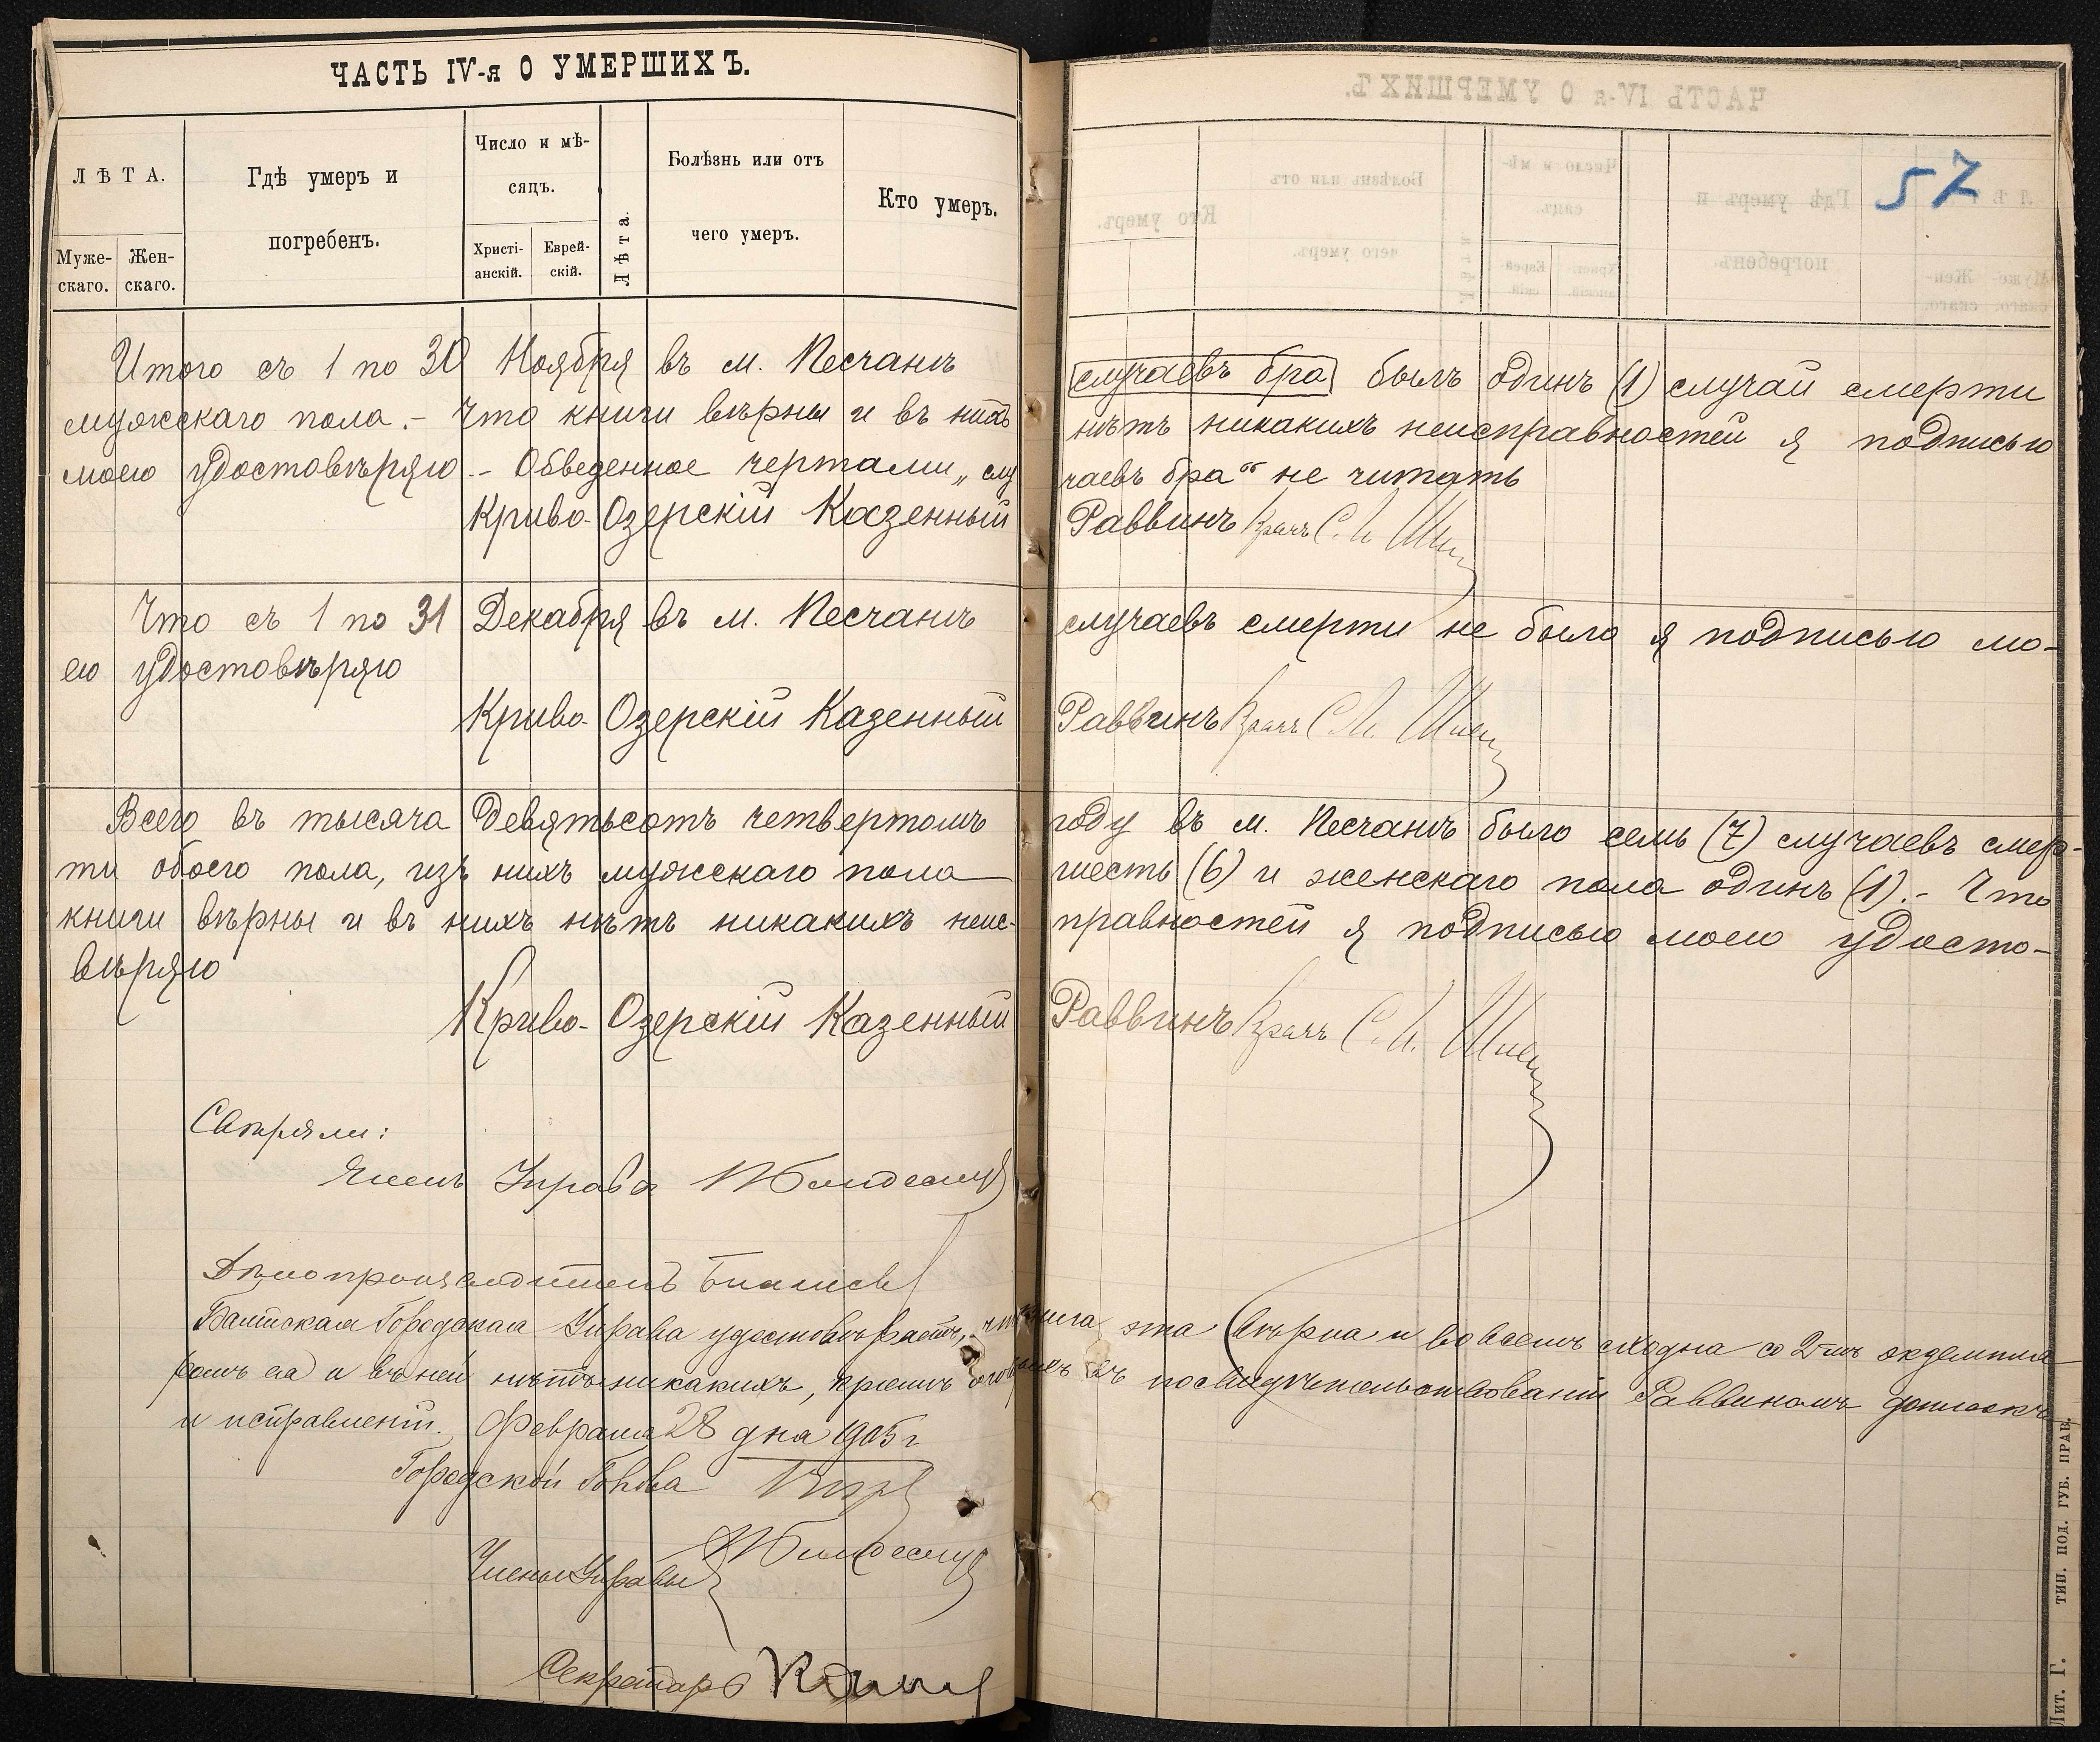 ЧАСТЬ IV-я О УМЕРШИХЪ.
ЛѢТА.
Муже-
скаго.
Жен-
скаго.
Гдѣ умеръ и
погребенъ.
Число и мѣ-
сяцъ.
Христі-
анскій.
Еврей-
скій.
Лѣта.
Болѣзнь или отъ
чего умеръ.
Кто умеръ.
57
Итого съ 1 по 30 Ноября въ м. Песчанѣ случаевъ бра былъ одинъ (1) случай смерти
мужскаго пола.- Что книги вѣрны и въ нихъ нѣтъ никакихъ неисправностей я подписью
моею удостовѣряю.- Обведенное чертами „слу чаевъ бра“ не читать
Криво-Озерскій Казенный Раввинъ Врачъ С. И.
Что съ 1 по 31 Декабря въ м. Песчанѣ случаевъ смерти не было я подписью мо-
ею удостовѣряю
Криво-Озерскій Казенный Раввинъ Врачъ С. И.
Всего въ тысяча девятьсотъ четвертомъ году въ м. Песчанѣ было семь (7) случаевъ смер-
ти обоего пола, изъ нихъ мужскаго пола шесть (6) и женскаго пола одинъ (1).- Что
книги вѣрны и въ нихъ нѣтъ никакихъ неис- правностей я подписью моею удосто-
вѣряю
Криво-Озерскій Казенный Раввинъ Врачъ С. И.
Свѣряли:
Членъ Управы
Дѣлопроизводитель
Балтская Городская Управа удостовѣряетъ, что книга эта вѣрна и во всемъ сходна со 2-мъ экземпля-
ромъ ея и въ ней нѣтъ никакихъ, кромѣ Раввиномъ
и исправленій. Февраля 28 дня 1905 г
Городской Голова
Члены Управы
Секретарь
Лит. Г. ТИП. ПОД. ГУБ. ПРАВ.